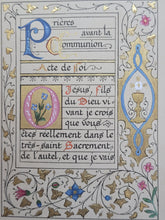 Prières
avant la
Communion
Acte de Foi
O Jesus, Fils
du Dieu vi
vant je crois
que Vous
êtes reellement dans le
très-saint Sacrement
de l'autel, et que je vais